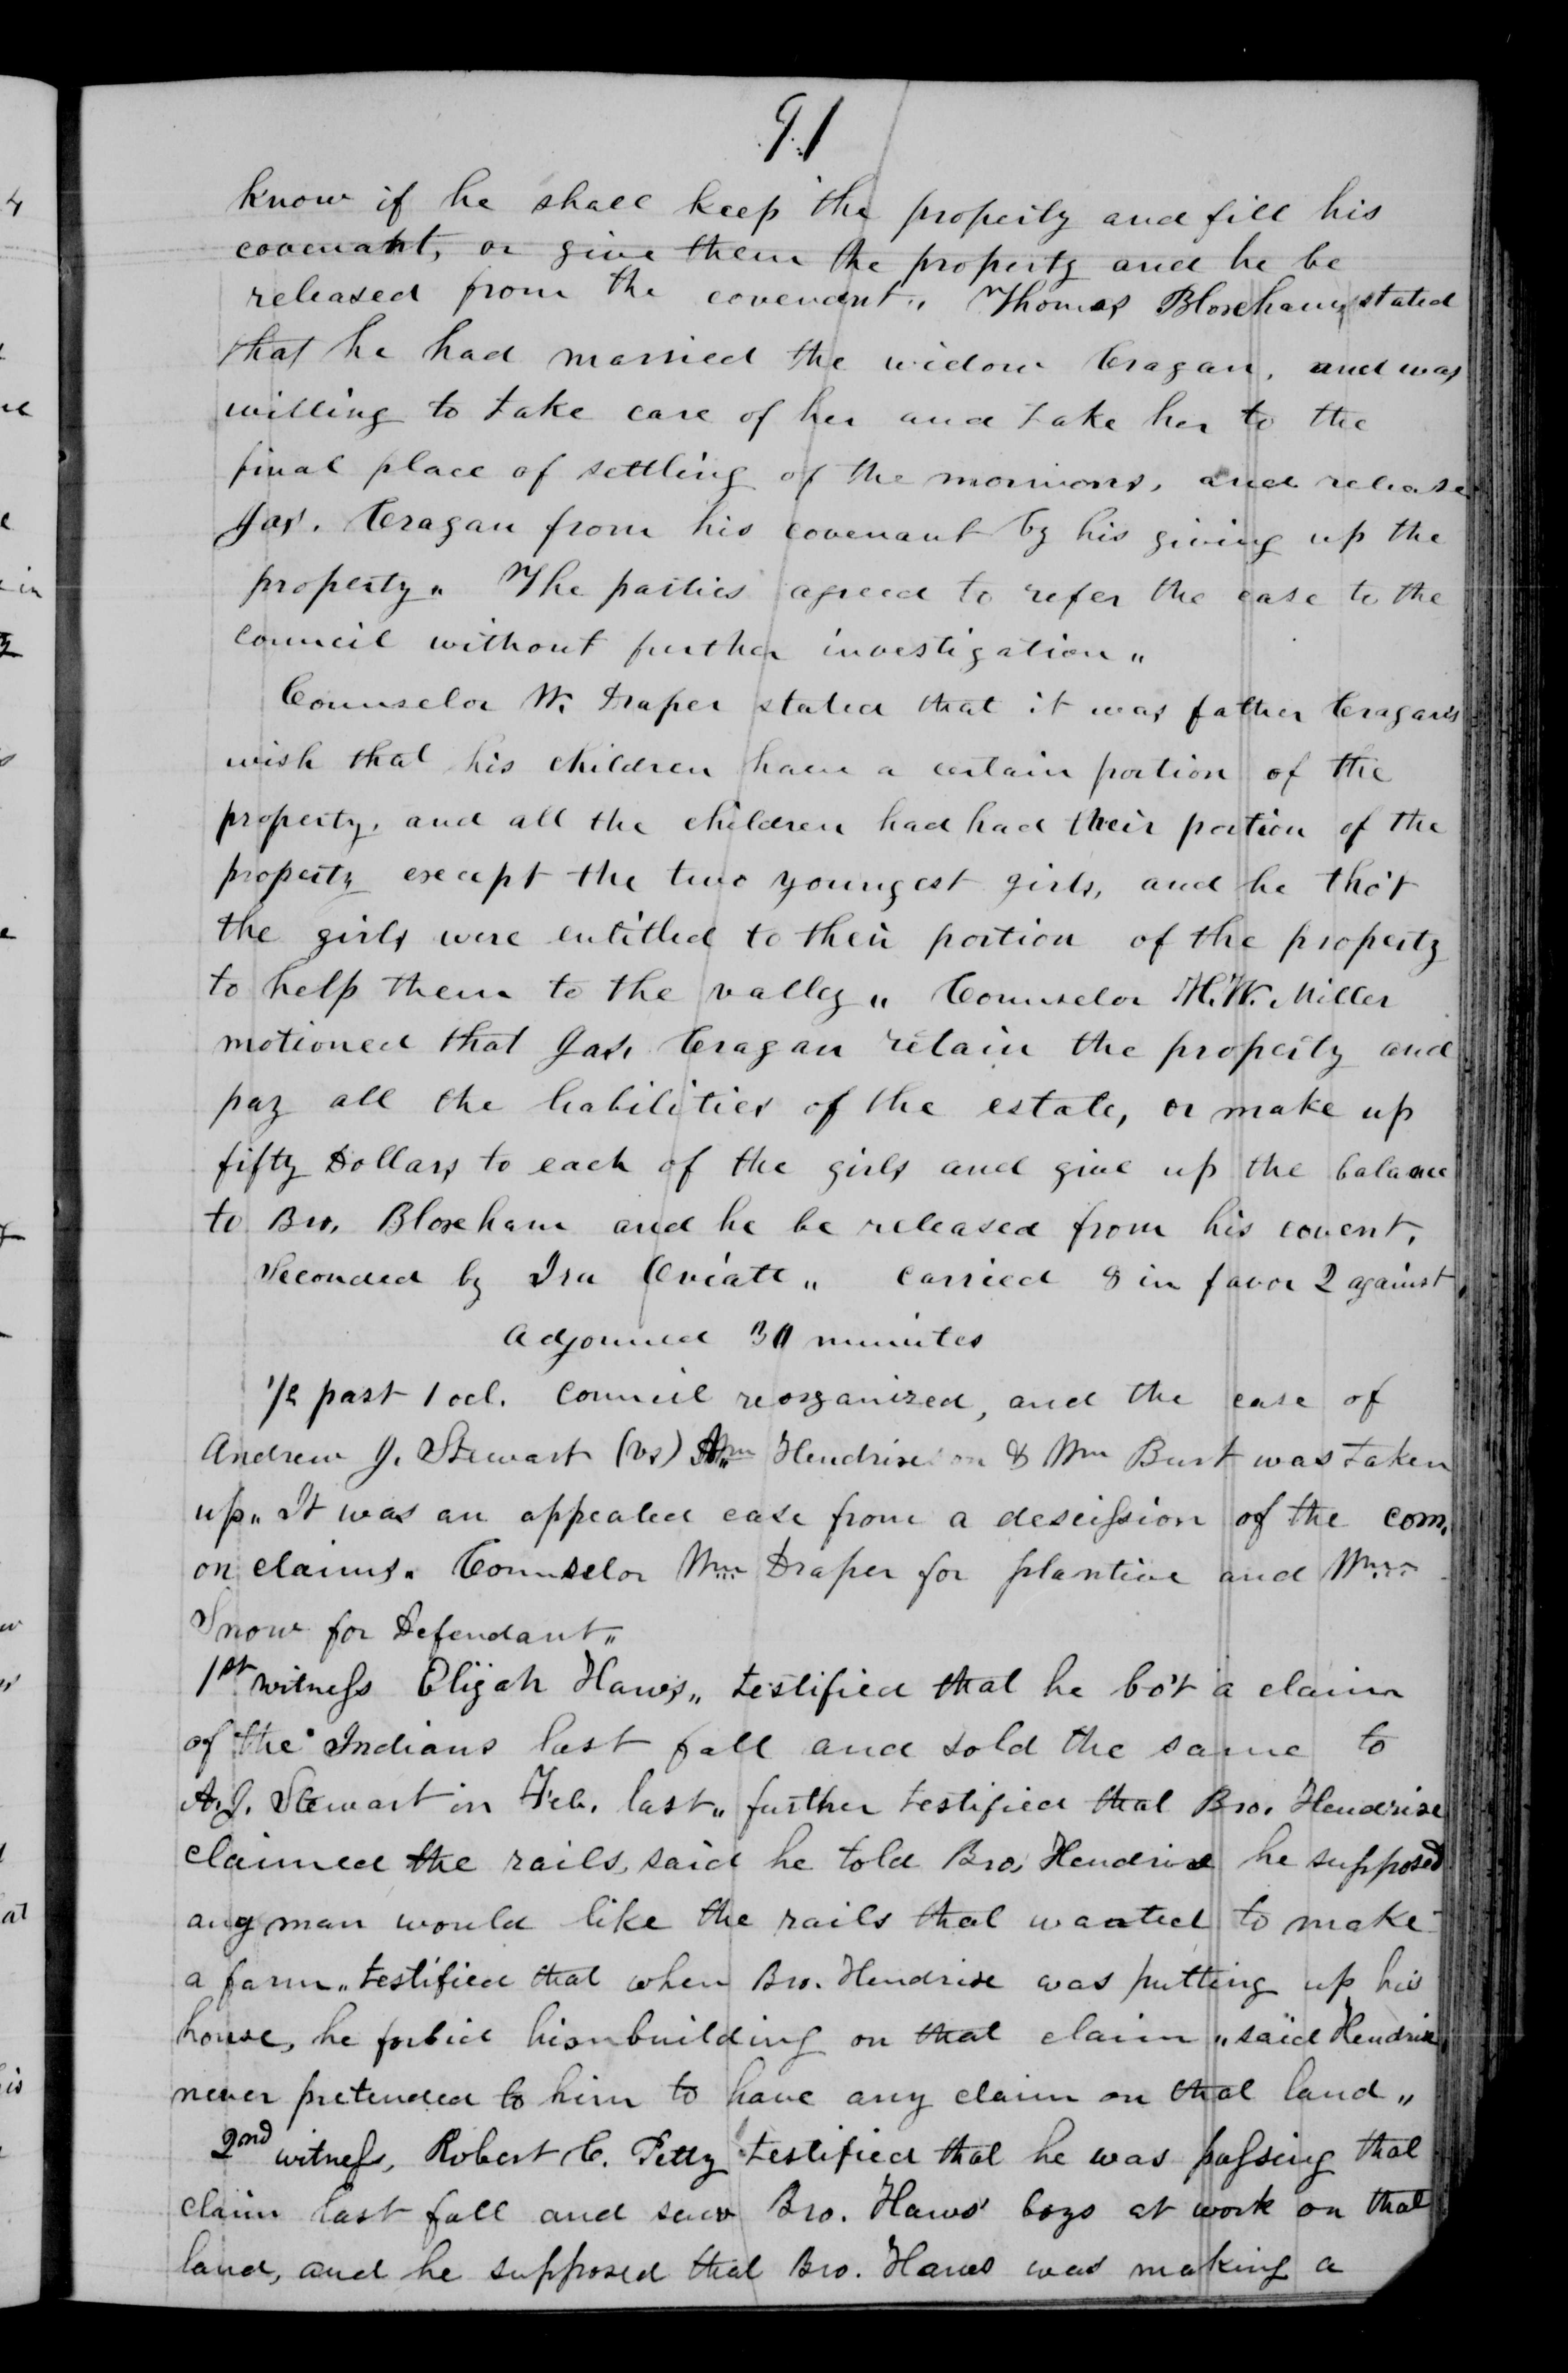 91
know if he shall keep the property and fill his
covenant, or give them the property and he be
released from the covenant„ Thomas Bloxham, stated
that he had married the widow Cragan, and was
willing to take care of her and take her to the
final place of settling of the mormons, and release
Jas. Cragan from his covenant by his giving up the
property„ The parties agreed to refer the case to the
council without further investigation„
Counselor W. Draper stated that it was father Cragan's
wish that his children have a certain portion of the
property, and all the children had had their portion of the
property except the two youngest girls, and he tho't
the girls were entitled to their portion of the property
to help them to the valley„ Counselor H. W. Miller
motioned that Jas. Cragan retain the property and
pay all the liabilities of the estate, or make up
fifty Dollars to each of the girls and give up the balance
to Bro. Bloxham and he be released from his covent,
Seconded by Ira Oviatt„ carried 8 in favor 2 against
Adjourned 30 minutes
1/2 past 1 ocl. Council reorganized, and the case of
Andrew J. Stewart (vs) Hendrix on & Wm Burt was taken
up„ It was an appealed case from a descission of the com.
on claims. Counselor Wm Draper for plantive and Wm
Snow for Defendant„
1st witness Elijah Haws„ testified that he bo't a claim
of the Indians last fall and sold the same to
A. J. Stewart in Feb. last„ further testified that Bro. Hendrix
claimed the rails, said he told Bro. Hendrix he supposed
any man would like the rails that wanted to make
a farm„ testified that when Bro. Hendrix was putting up his
house, he forbid him building on that claim„ said Hendrix
never pretended to him to have any claim on that land„
2nd witness, Robert C. Petty testified that he was passing that
claim last fall and saw Bro. Haws' boys at work on that
land, and he supposed that Bro. Haws was making a